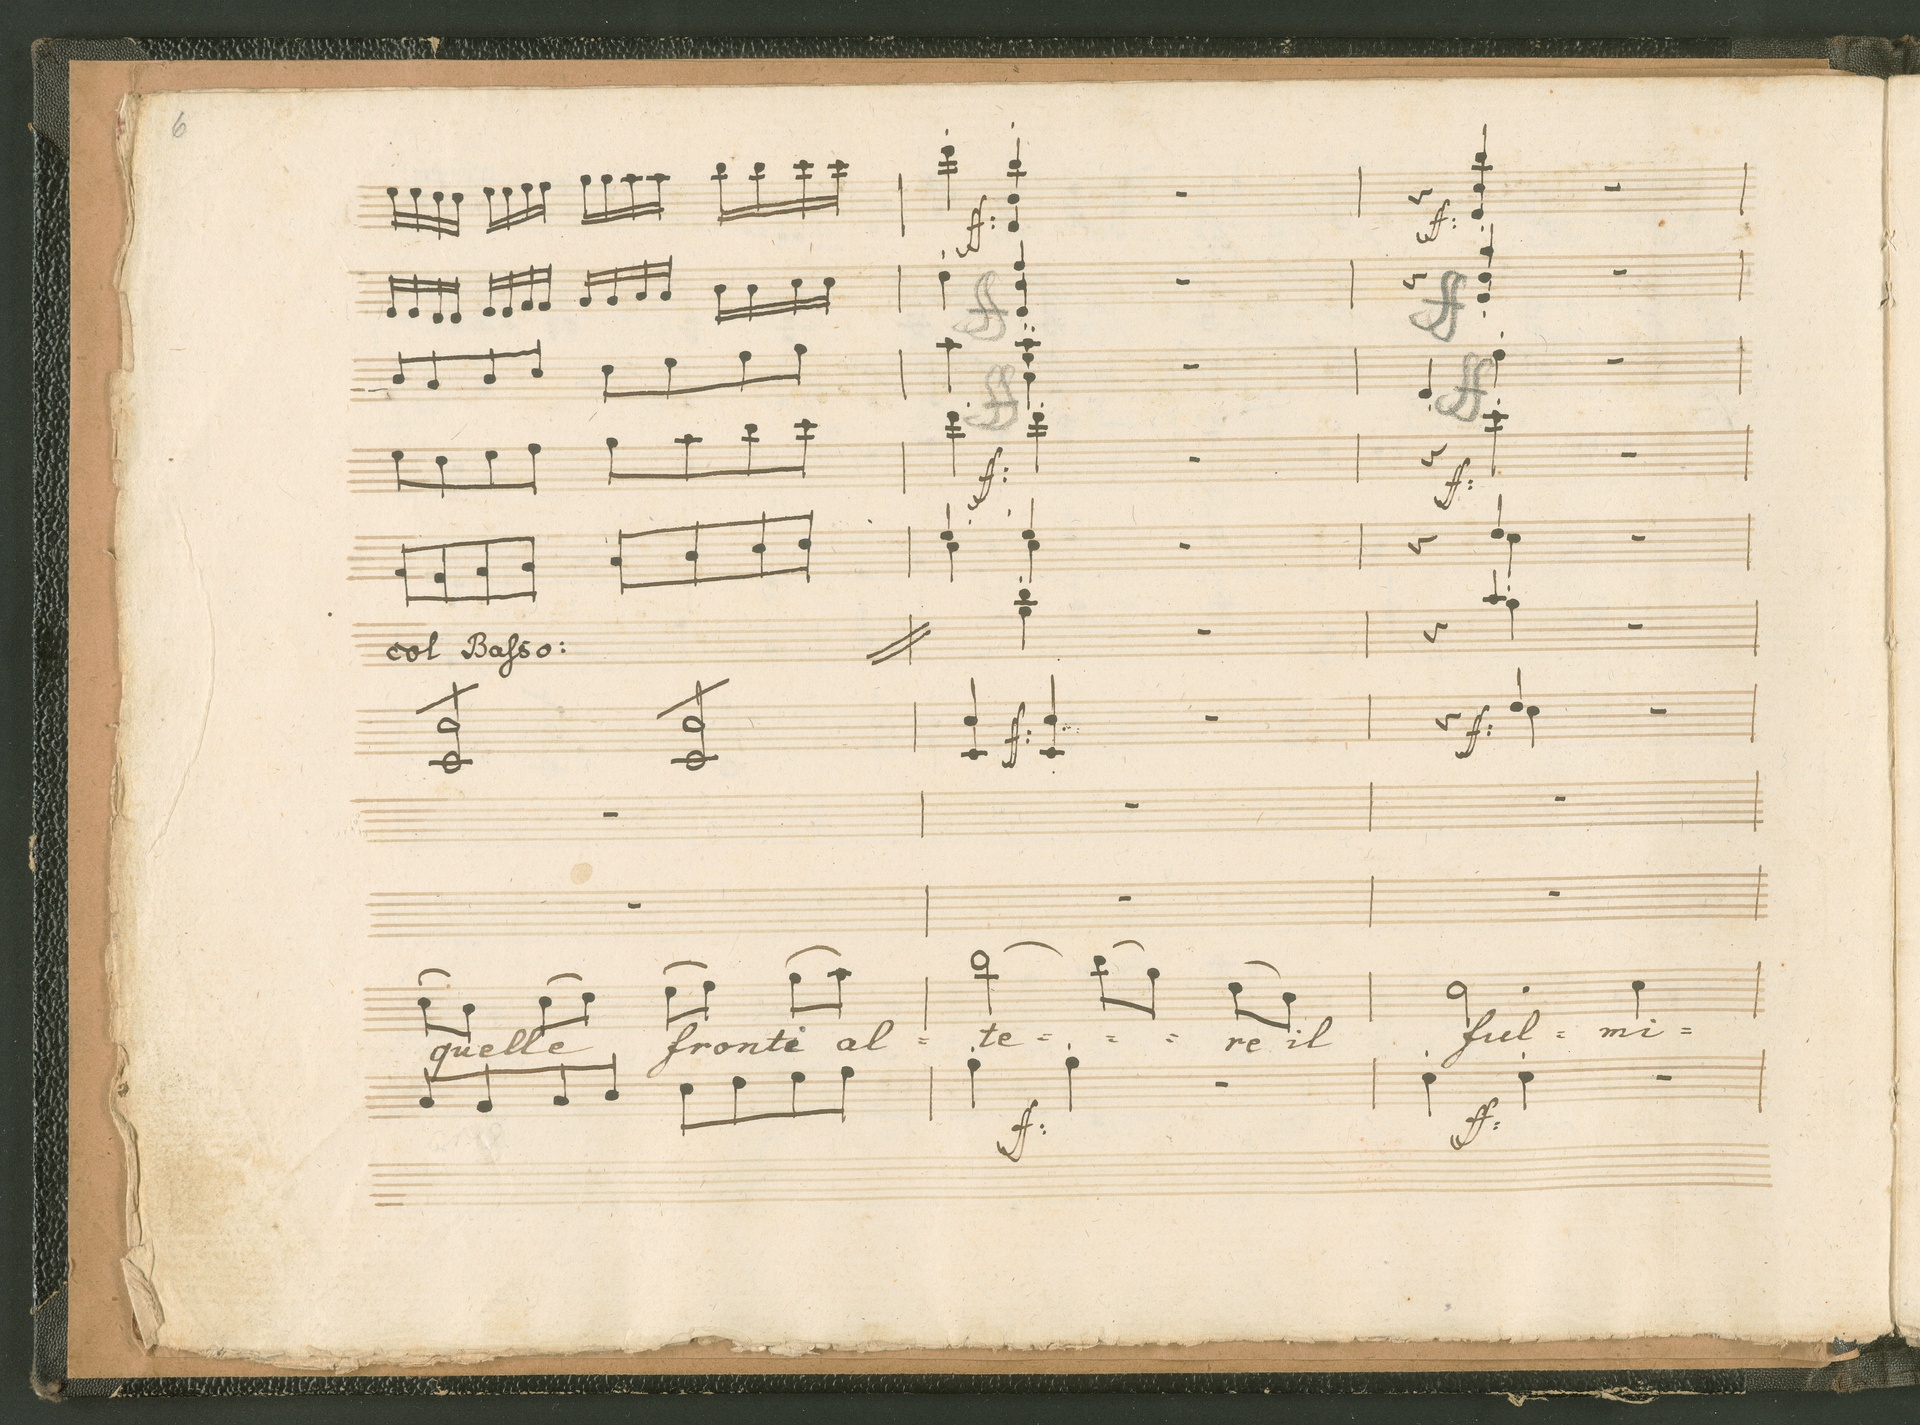 6
ff: ff:
ff ff
ff ff
ff: ff:
col Basso:
ff: ff:
quelle fronti al = te = = = re il ful = mi =
ff: ff: